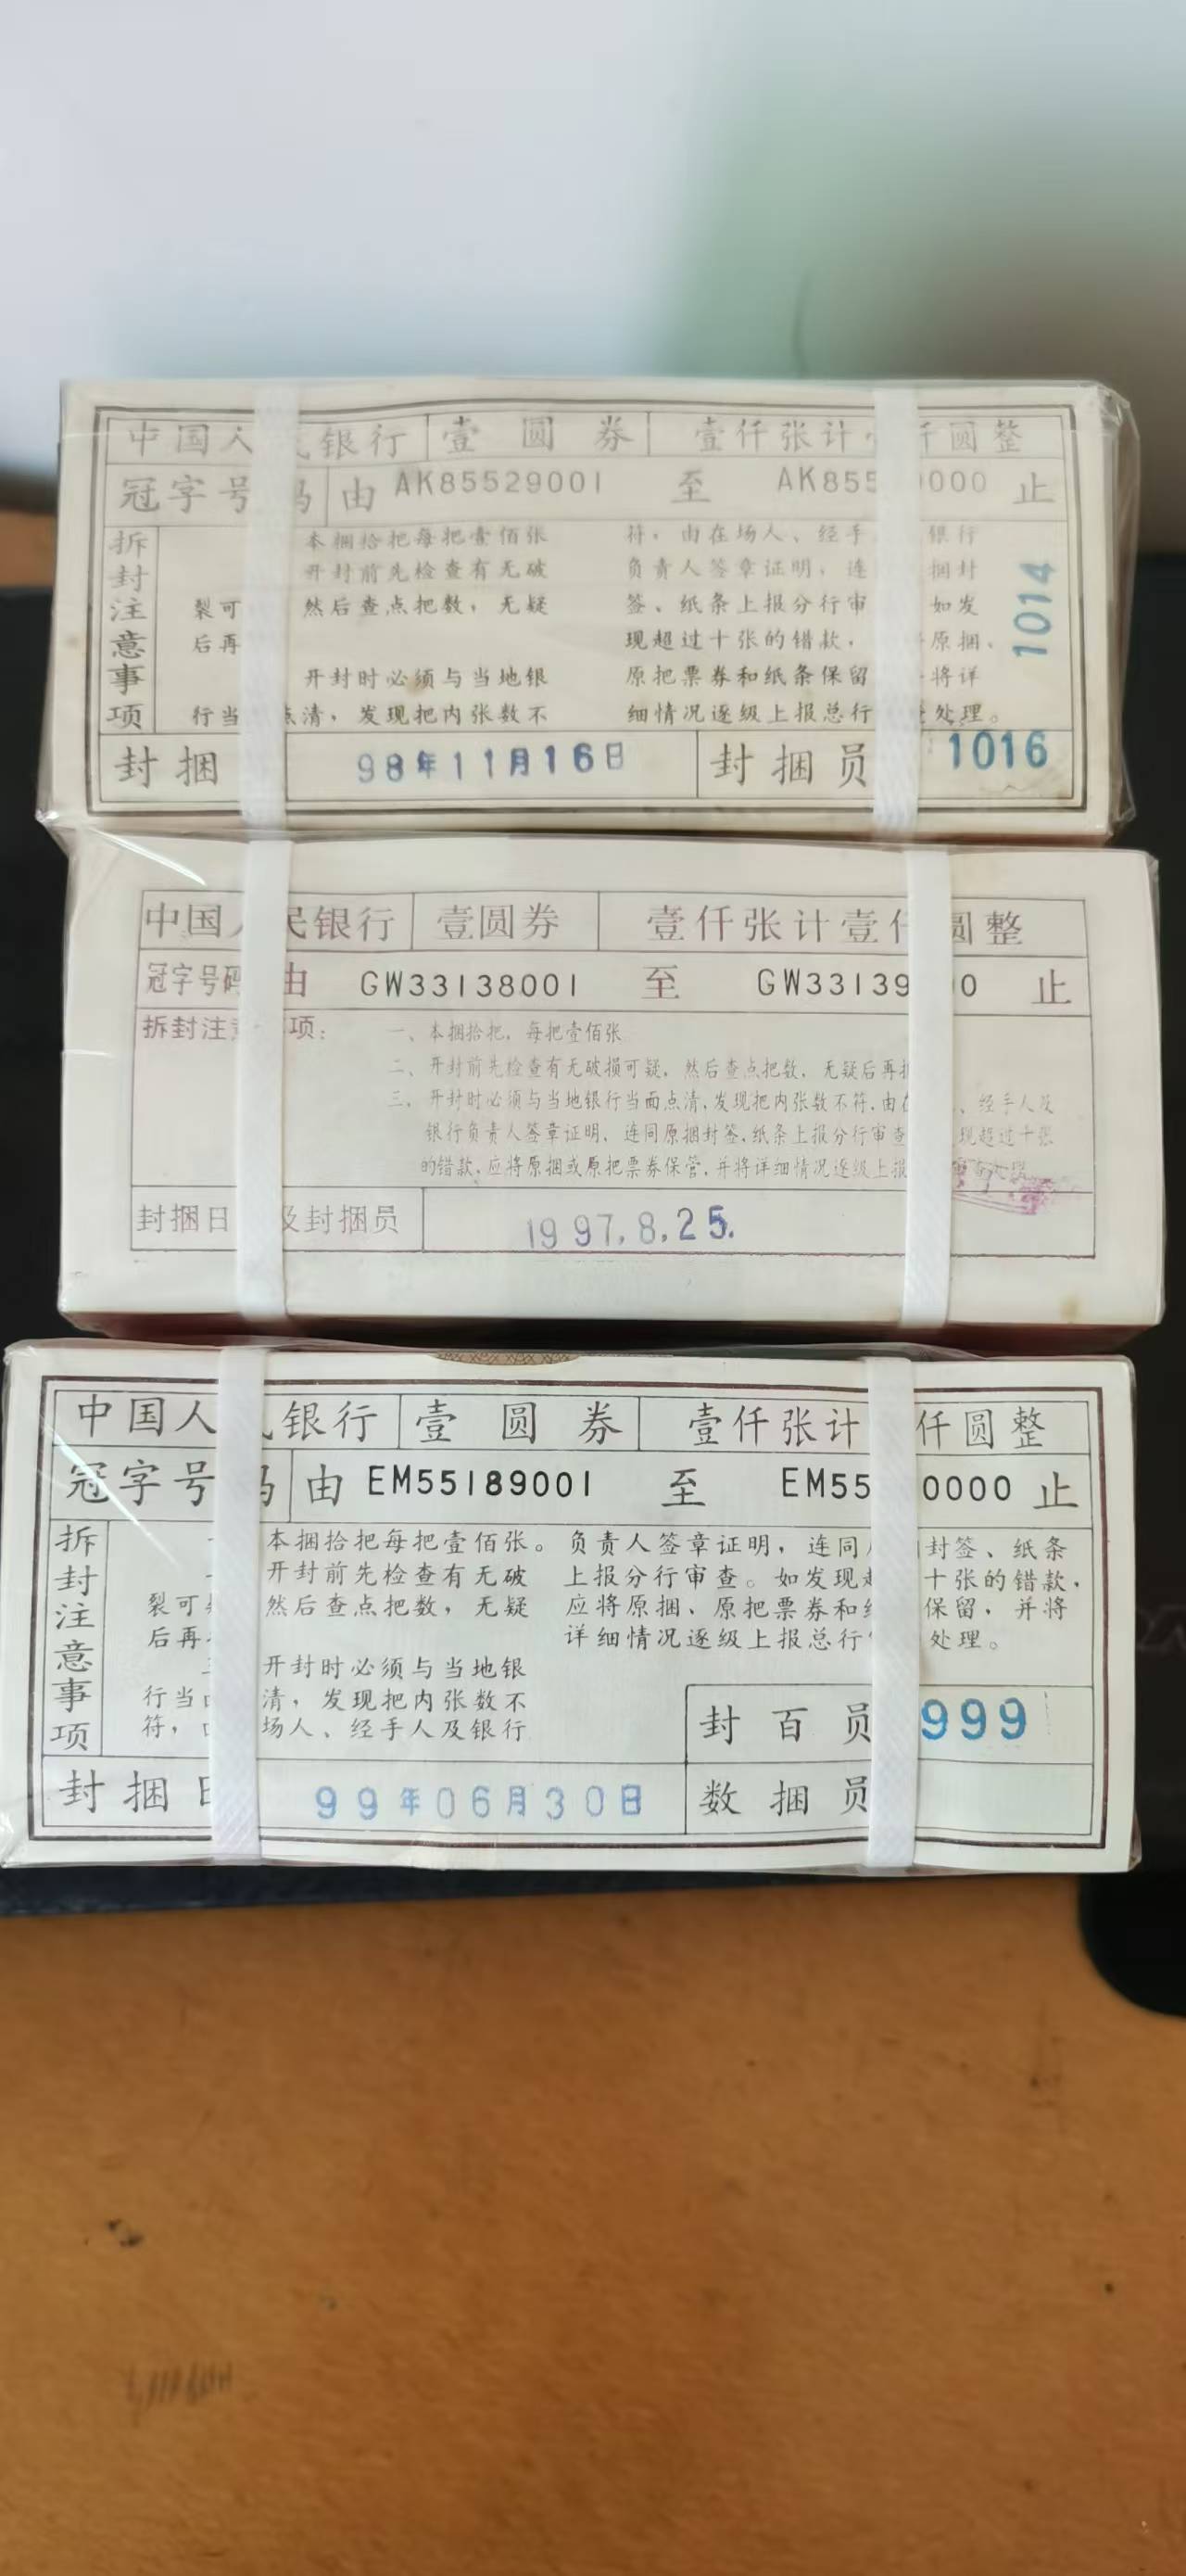 中国人 银行 壹圆券 壹仟张计 仟圆整
冠字号码 由 AK85529001 至 AK855 0000 止
拆封注意事项
本捆拾把每把壹佰张
开封前先检查有无破
裂可 然后查点把数，无疑
后再
开封时必须与当地银
行当 点清，发现把内张数不
符，由在场人、经手 银行
负责人签章证明，连 捆封
签、纸条上报分行审 如发
现超过十张的错款， 原捆、
原把票券和纸条保留 将详
细情况逐级上报总行 处理。
1014
封捆 98年11月16日 封捆员 1016
中国人民银行 壹圆券 壹仟张计壹仟圆整
冠字号码由 GW33138001 至 GW33139 0 止
拆封注意事项：
一、本捆拾把，每把壹佰张
二、开封前先检查有无破损可疑，然后查点把数，无疑后再拆
三、开封时必须与当地银行当面点清，发现把内张数不符，由在 、经手人及
银行负责人签章证明，连同原捆封签，纸条上报分行审查 现超过十张
的错款，应将原捆或原把票券保管，并将详细情况逐级上报
封捆日 及封捆员 1997.8.25.
中国人 银行 壹圆券 壹仟张计 仟圆整
冠字号码 由 EM55189001 至 EM55 0000 止
拆封注意事项
本捆拾把每把壹佰张。
开封前先检查有无破
裂可 然后查点把数，无疑
后再
开封时必须与当地银
行当 清，发现把内张数不
符， 场人、经手人及银行
负责人签章证明，连同 封签、纸条
上报分行审查。如发现 十张的错款，
应将原捆、原把票券和 保留，并将
详细情况逐级上报总行 处理。
封百员 999
封捆日 99年06月30日 数捆员